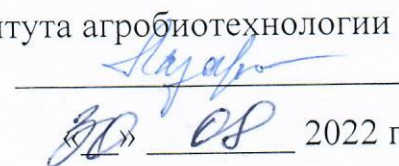 итута агробиотехнологии
«30» 08 2022 г